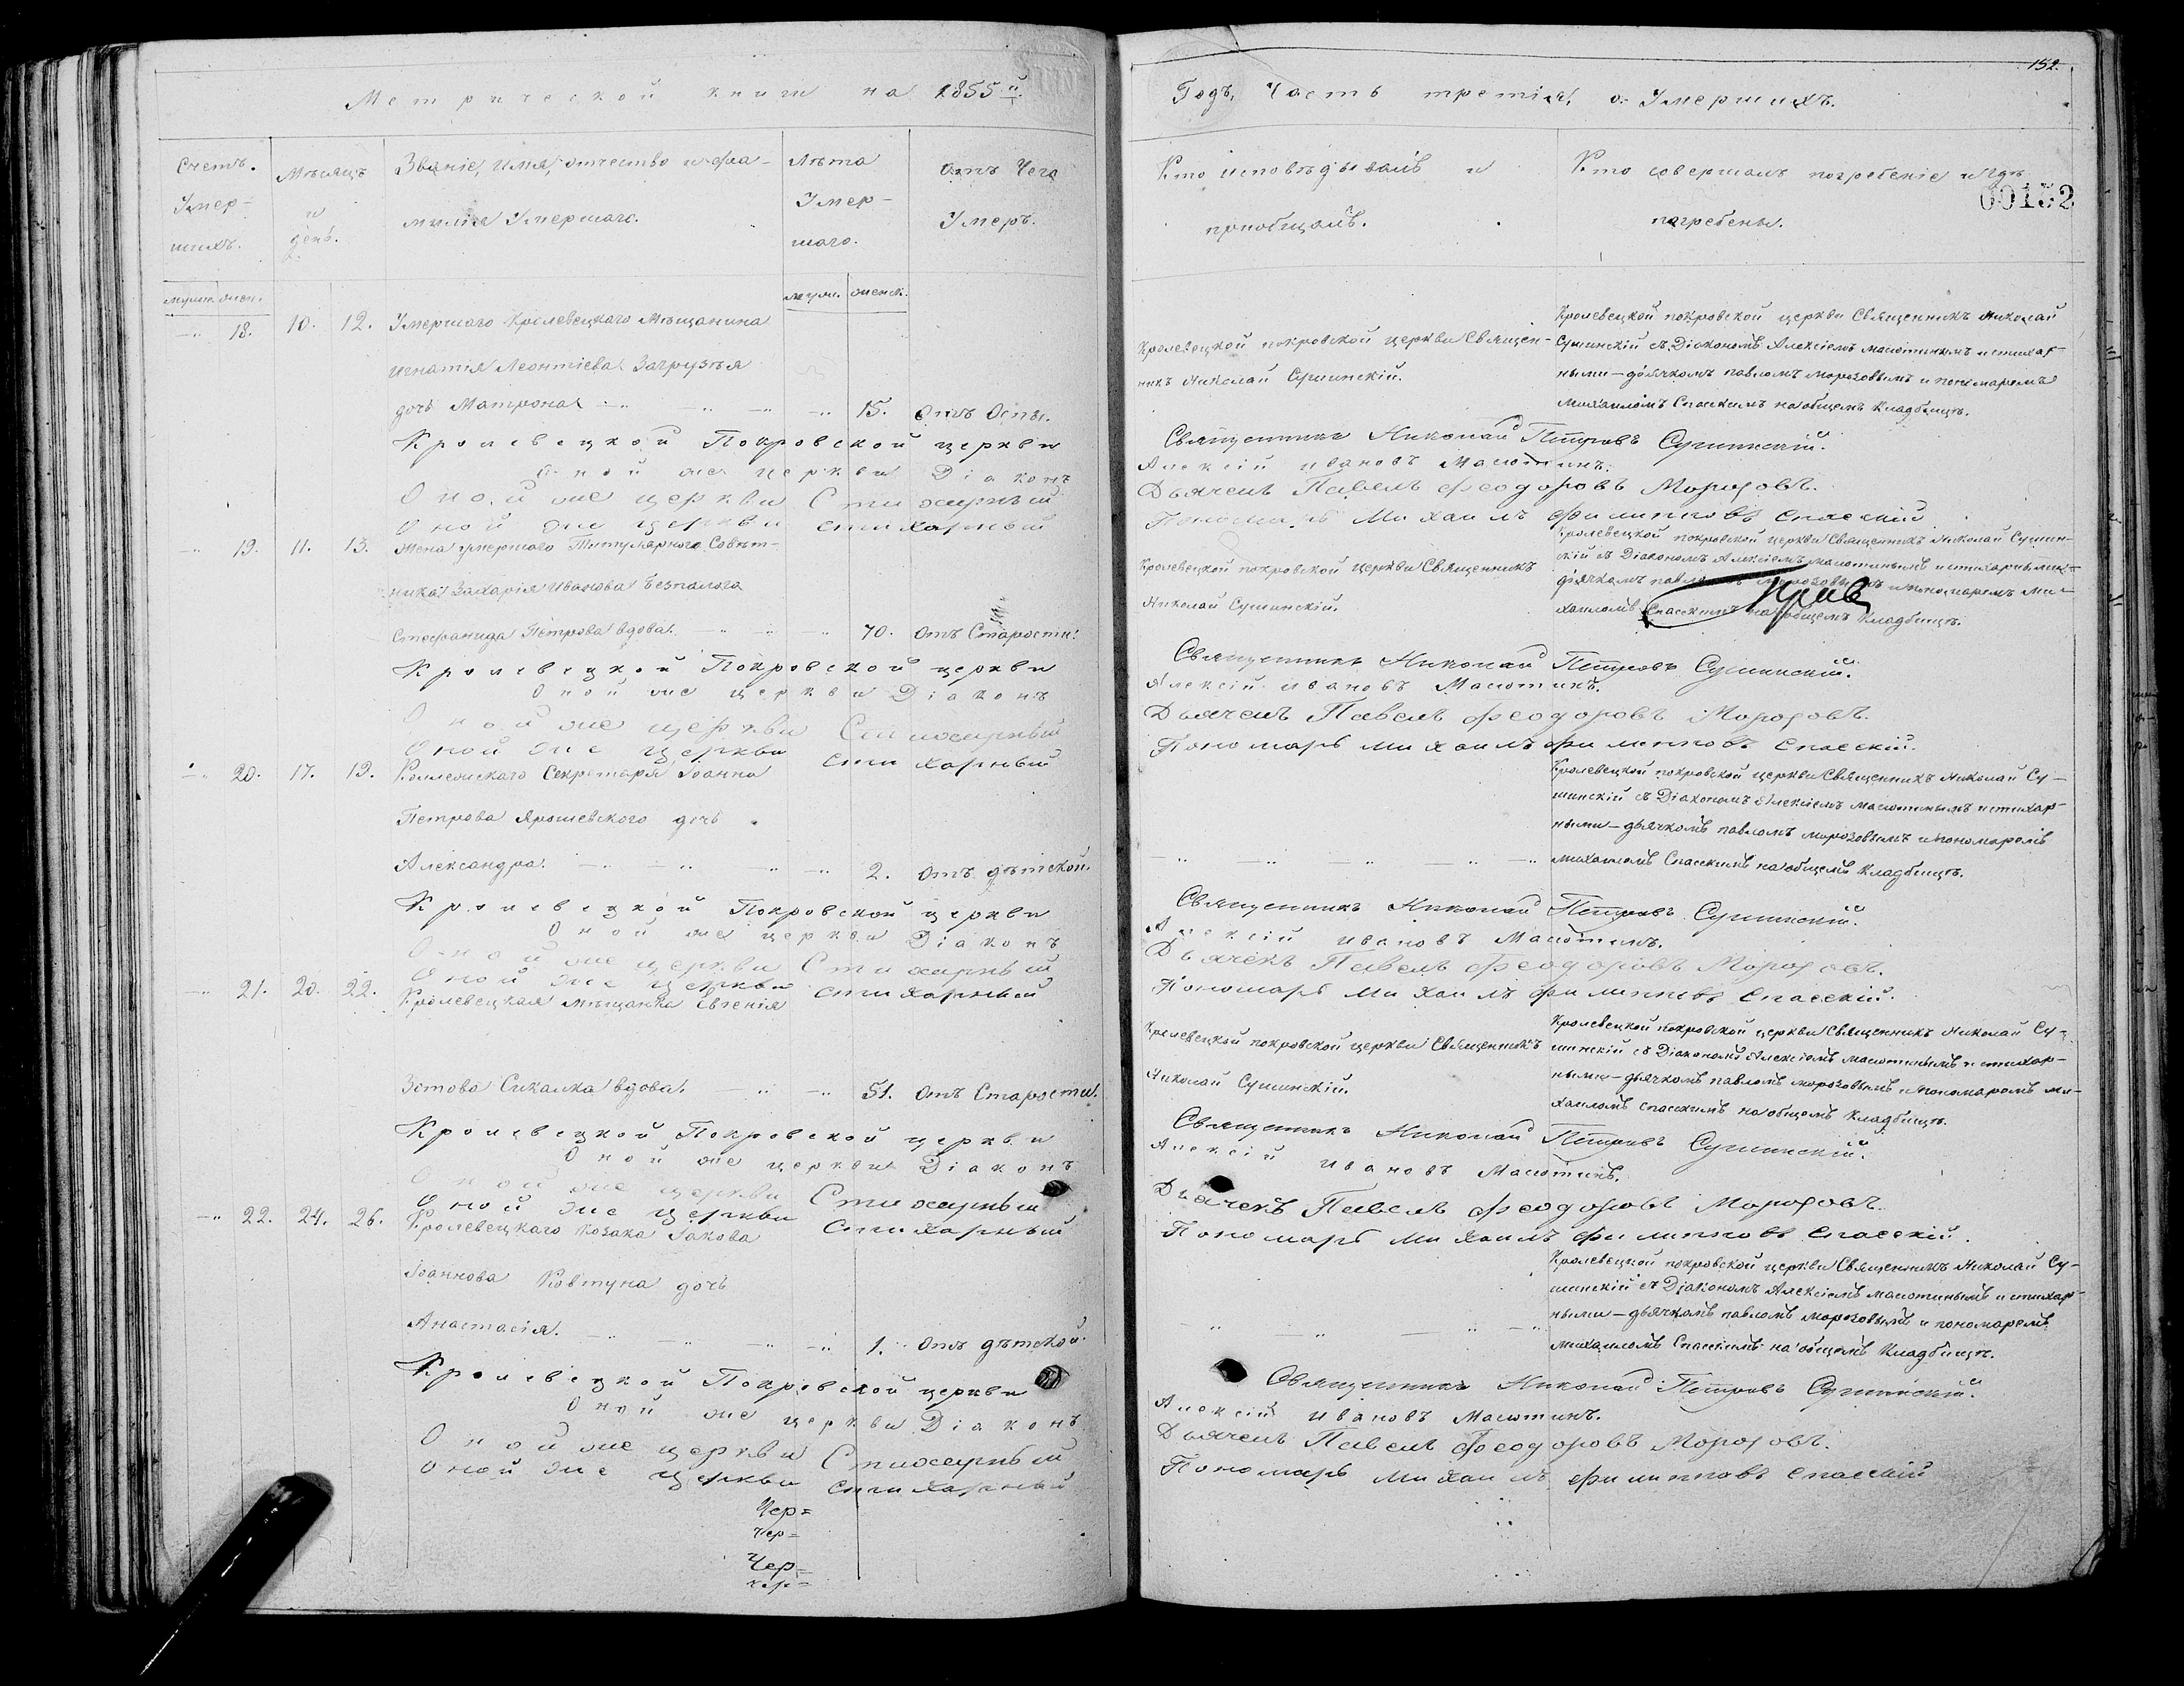 Метрической книги на 1855й.
Счетъ. Умер-шихъ.
Мѣсяцъ и день.
Званіе, имя, отчество и фа-
милія Умершаго.
Лѣта Умер-шаго.
Отъ Чего Умеръ.
мужс. женс.
мужс. женск.
18. 10. 12. Умершаго Кролевецкаго Мѣщанина
Игнатія Леонтіева Загрузѣя
дочь Матрона 15. Отъ Оспы.
Кролевецкой Покровской церкви
Оной же церкви Діаконъ
Оной же церкви Стихарный
Оной же церкви стихарный
19. 11. 13. Жена умершаго Титулярнаго Совѣт-
ника Захарія Иванова Безпалога
Стефанида Петрова вдова. 70. Отъ Старости.
Кролевецкой Покровской церкви
Оной же церкви Діаконъ
Оной же церкви Стихарный
Оной же церкви стихарный
20. 17. 19. Коллежскаго Секретаря Іоанна
Петрова Ярошевского дочь
Александра. 2. Отъ дѣтской.
Кролевецкой Покровской церкви
Оной же церкви Діаконъ
Оной же церкви Стихарный
Оной же церкви стихарный
21. 20. 22. Кролевецкая мѣщанка Евгенія
Сикалка вдова. 51. Отъ Старости.
Кролевецкой Покровской церкви
Оной же церкви Діаконъ
Оной же церкви Стихарный
Оной же церкви стихарный
22. 24. 26. Кролевецкаго Козака Іакова
Іоаннова Ковтуна дочь
Анастасія. 1. Отъ дѣтской.
Кролевецкой Покровской церкви
Оной же церкви Діаконъ
Оной же церкви Стихарный
Оной же церкви стихарный
Чер=
Чер=
Чер=
кер=
152.
Годъ, Часть третія, о Умершихъ.
Кто исповѣдывалъ и
пріобщалъ.
Кто совершалъ погребеніе и гдѣ
погребены.
00152
Кролевецкой покровской церкви Священ-
никъ Николай Сушинскій.
Кролевецкой покровской церкви Священникъ Николай
Сушинскій съ Діакономъ Алексіемъ Малютинымъ и стихар-
ными – дьячкомъ павломъ морозовымъ и пономаремъ
михаиломъ Спасскимъ на общемъ Кладбищѣ.
Священникъ Николай Петровъ Сушинскій.
Алексій Ивановъ Малютинъ.
Дьячекъ Павелъ Феодоровъ Морозовъ.
Пономарь Михаилъ Филипповъ Спасскій
Кролевецкой покровской церкви Священникъ
Николай Сушинскій.
Кролевецкой покровской церкви Священникъ Николай Сушин-
скій съ Діакономъ Алексіемъ малютинымъ и стихарными –
дьячкомъ павломъ морозовымъ и пономаремъ ми-
хаиломъ Спасскимъ на общемъ Кладбищѣ.
Священникъ Николай Петровъ Сушинскій.
Алексій Ивановъ Малютинъ.
Дьячекъ Павелъ Феодоровъ Морозовъ.
Пономарь Михаилъ Филипповъ Спасскій.
Кролевецкой покровской церкви Священникъ Николай Су-
шинскій съ Діакономъ Алексіемъ малютинымъ и стихар-
ными – дьячкомъ павломъ морозовымъ и пономаремъ
михаиломъ Спасскимъ на общемъ Кладбищѣ.
Священникъ Николай Петровъ Сушинскій.
Алексій Ивановъ Малютинъ.
Дьячекъ Павелъ Феодоровъ Морозовъ.
Пономарь Михаилъ Филипповъ Спасскій.
Кролевецкой покровской церкви Священникъ
Николай Сушинскій.
Кролевецкой покровской церкви Священникъ Николай Су-
шинскій съ Діакономъ Алексіемъ малютинымъ и стихар-
ными – дьячкомъ павломъ морозовымъ и пономаремъ ми-
хаиломъ спасскимъ на общемъ Кладбищѣ.
Священникъ Николай Петровъ Сушинскій.
Алексій Ивановъ Малютинъ.
Дьячекъ Павелъ Феодоровъ Морозовъ.
Пономарь Михаилъ Филипповъ Спасскій.
Кролевецкой покровской церкви Священникъ Николай Су-
шинскій съ Діакономъ Алексіемъ малютинымъ и стихар-
ными – дьячкомъ павломъ морозовымъ и пономаремъ
михаиломъ Спасскимъ на общемъ Кладбищѣ.
Священникъ Николай Петровъ Сушинскій.
Алексій Ивановъ Малютинъ.
Дьячекъ Павелъ Феодоровъ Морозовъ.
Пономарь Михаилъ Филипповъ Спасскій